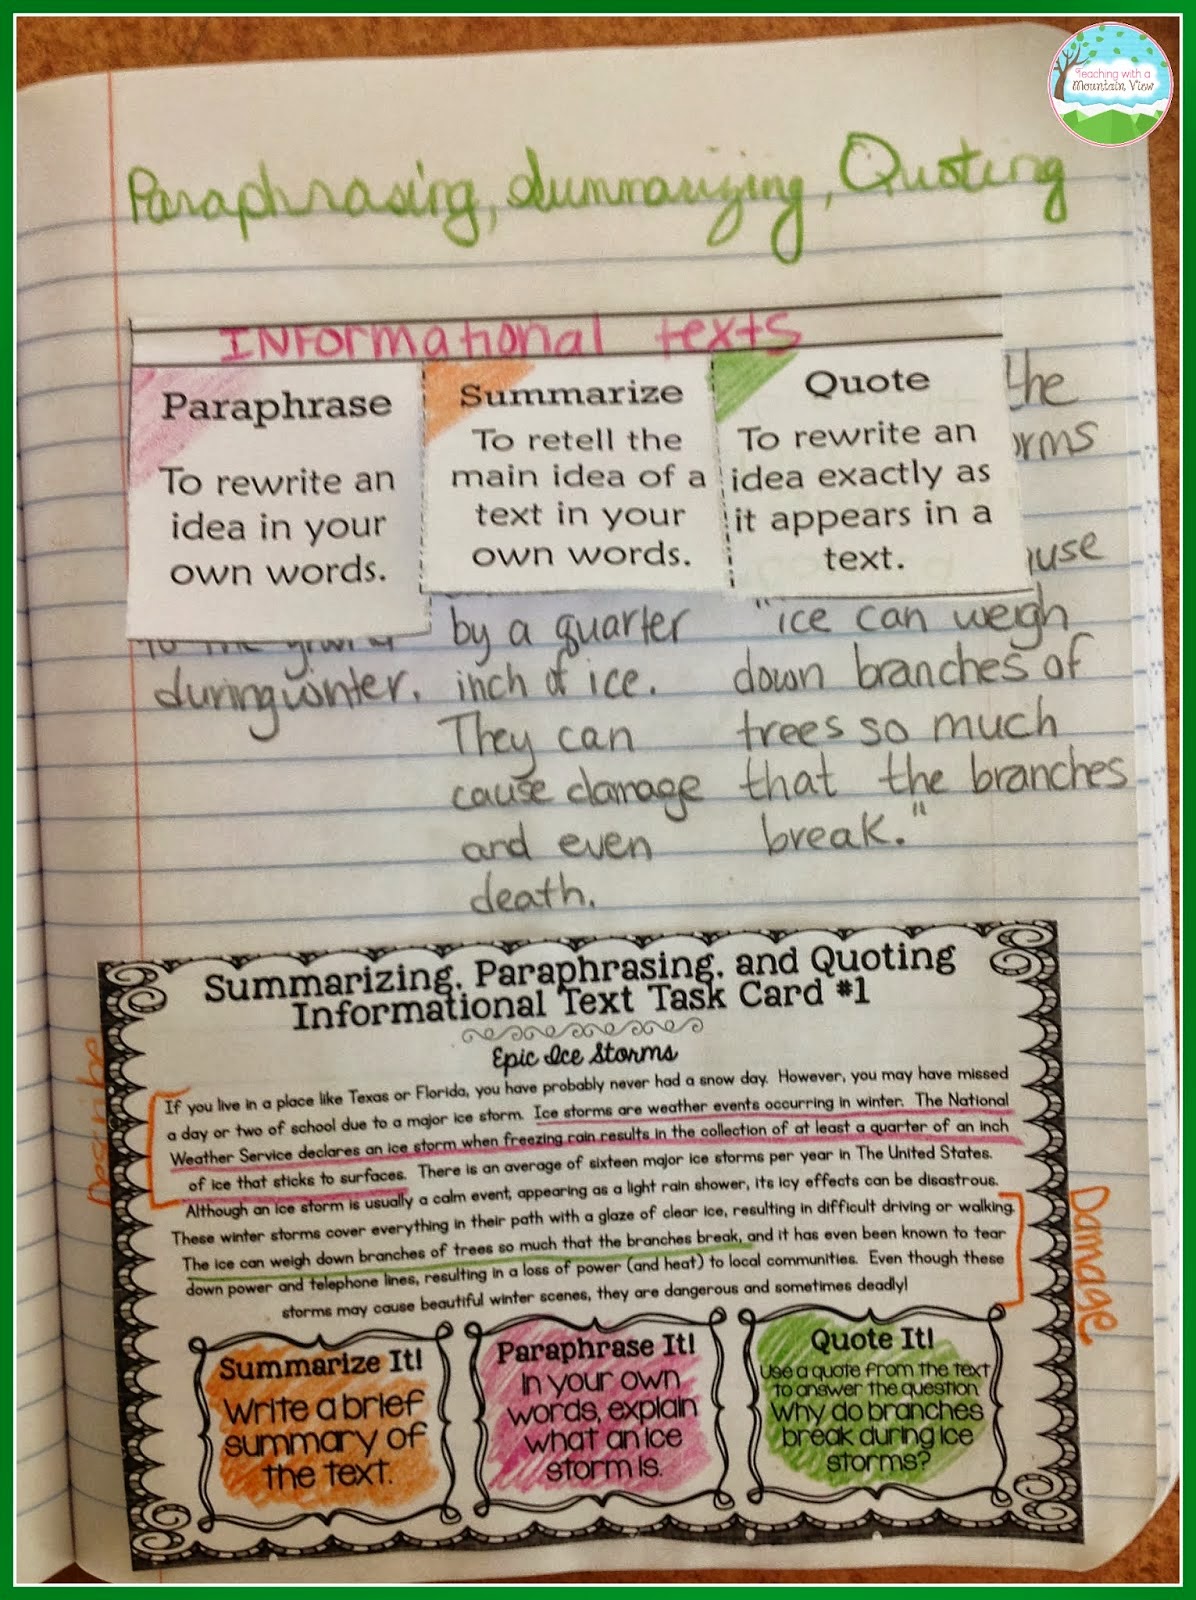 Teaching with a
Mountain View
Paraphrasing, Summarizing, Quoting
INformational texts
Paraphrase
To rewrite an
idea in your
own words.
Summarize
To retell the
main idea of a
text in your
own words.
Quote
To rewrite an
idea exactly as
it appears in a
text.
the
during winter.
by a quarter
inch of ice.
They can
cause damage
and even
death.
"ice can weigh
down branches of
trees so much
that the branches
break."
Summarizing, Paraphrasing, and Quoting
Informational Text Task Card #1
Epic Ice Storms
If you live in a place like Texas or Florida, you have probably never had a snow day. However, you may have missed
a day or two of school due to a major ice storm. Ice storms are weather events occurring in winter. The National
Weather Service declares an ice storm when freezing rain results in the collection of at least a quarter of an inch
of ice that sticks to surfaces. There is an average of sixteen major ice storms per year in The United States.
Although an ice storm is usually a calm event, appearing as a light rain shower, its icy effects can be disastrous.
These winter storms cover everything in their path with a glaze of clear ice, resulting in difficult driving or walking.
The ice can weigh down branches of trees so much that the branches break, and it has even been known to tear
down power and telephone lines, resulting in a loss of power (and heat) to local communities. Even though these
storms may cause beautiful winter scenes, they are dangerous and sometimes deadly!
Damage
Summarize It!
Write a brief
summary of
the text.
Paraphrase It!
In your own
words, explain
what an ice
storm is.
Quote It!
Use a quote from the text
to answer the question.
Why do branches
break during ice
storms?